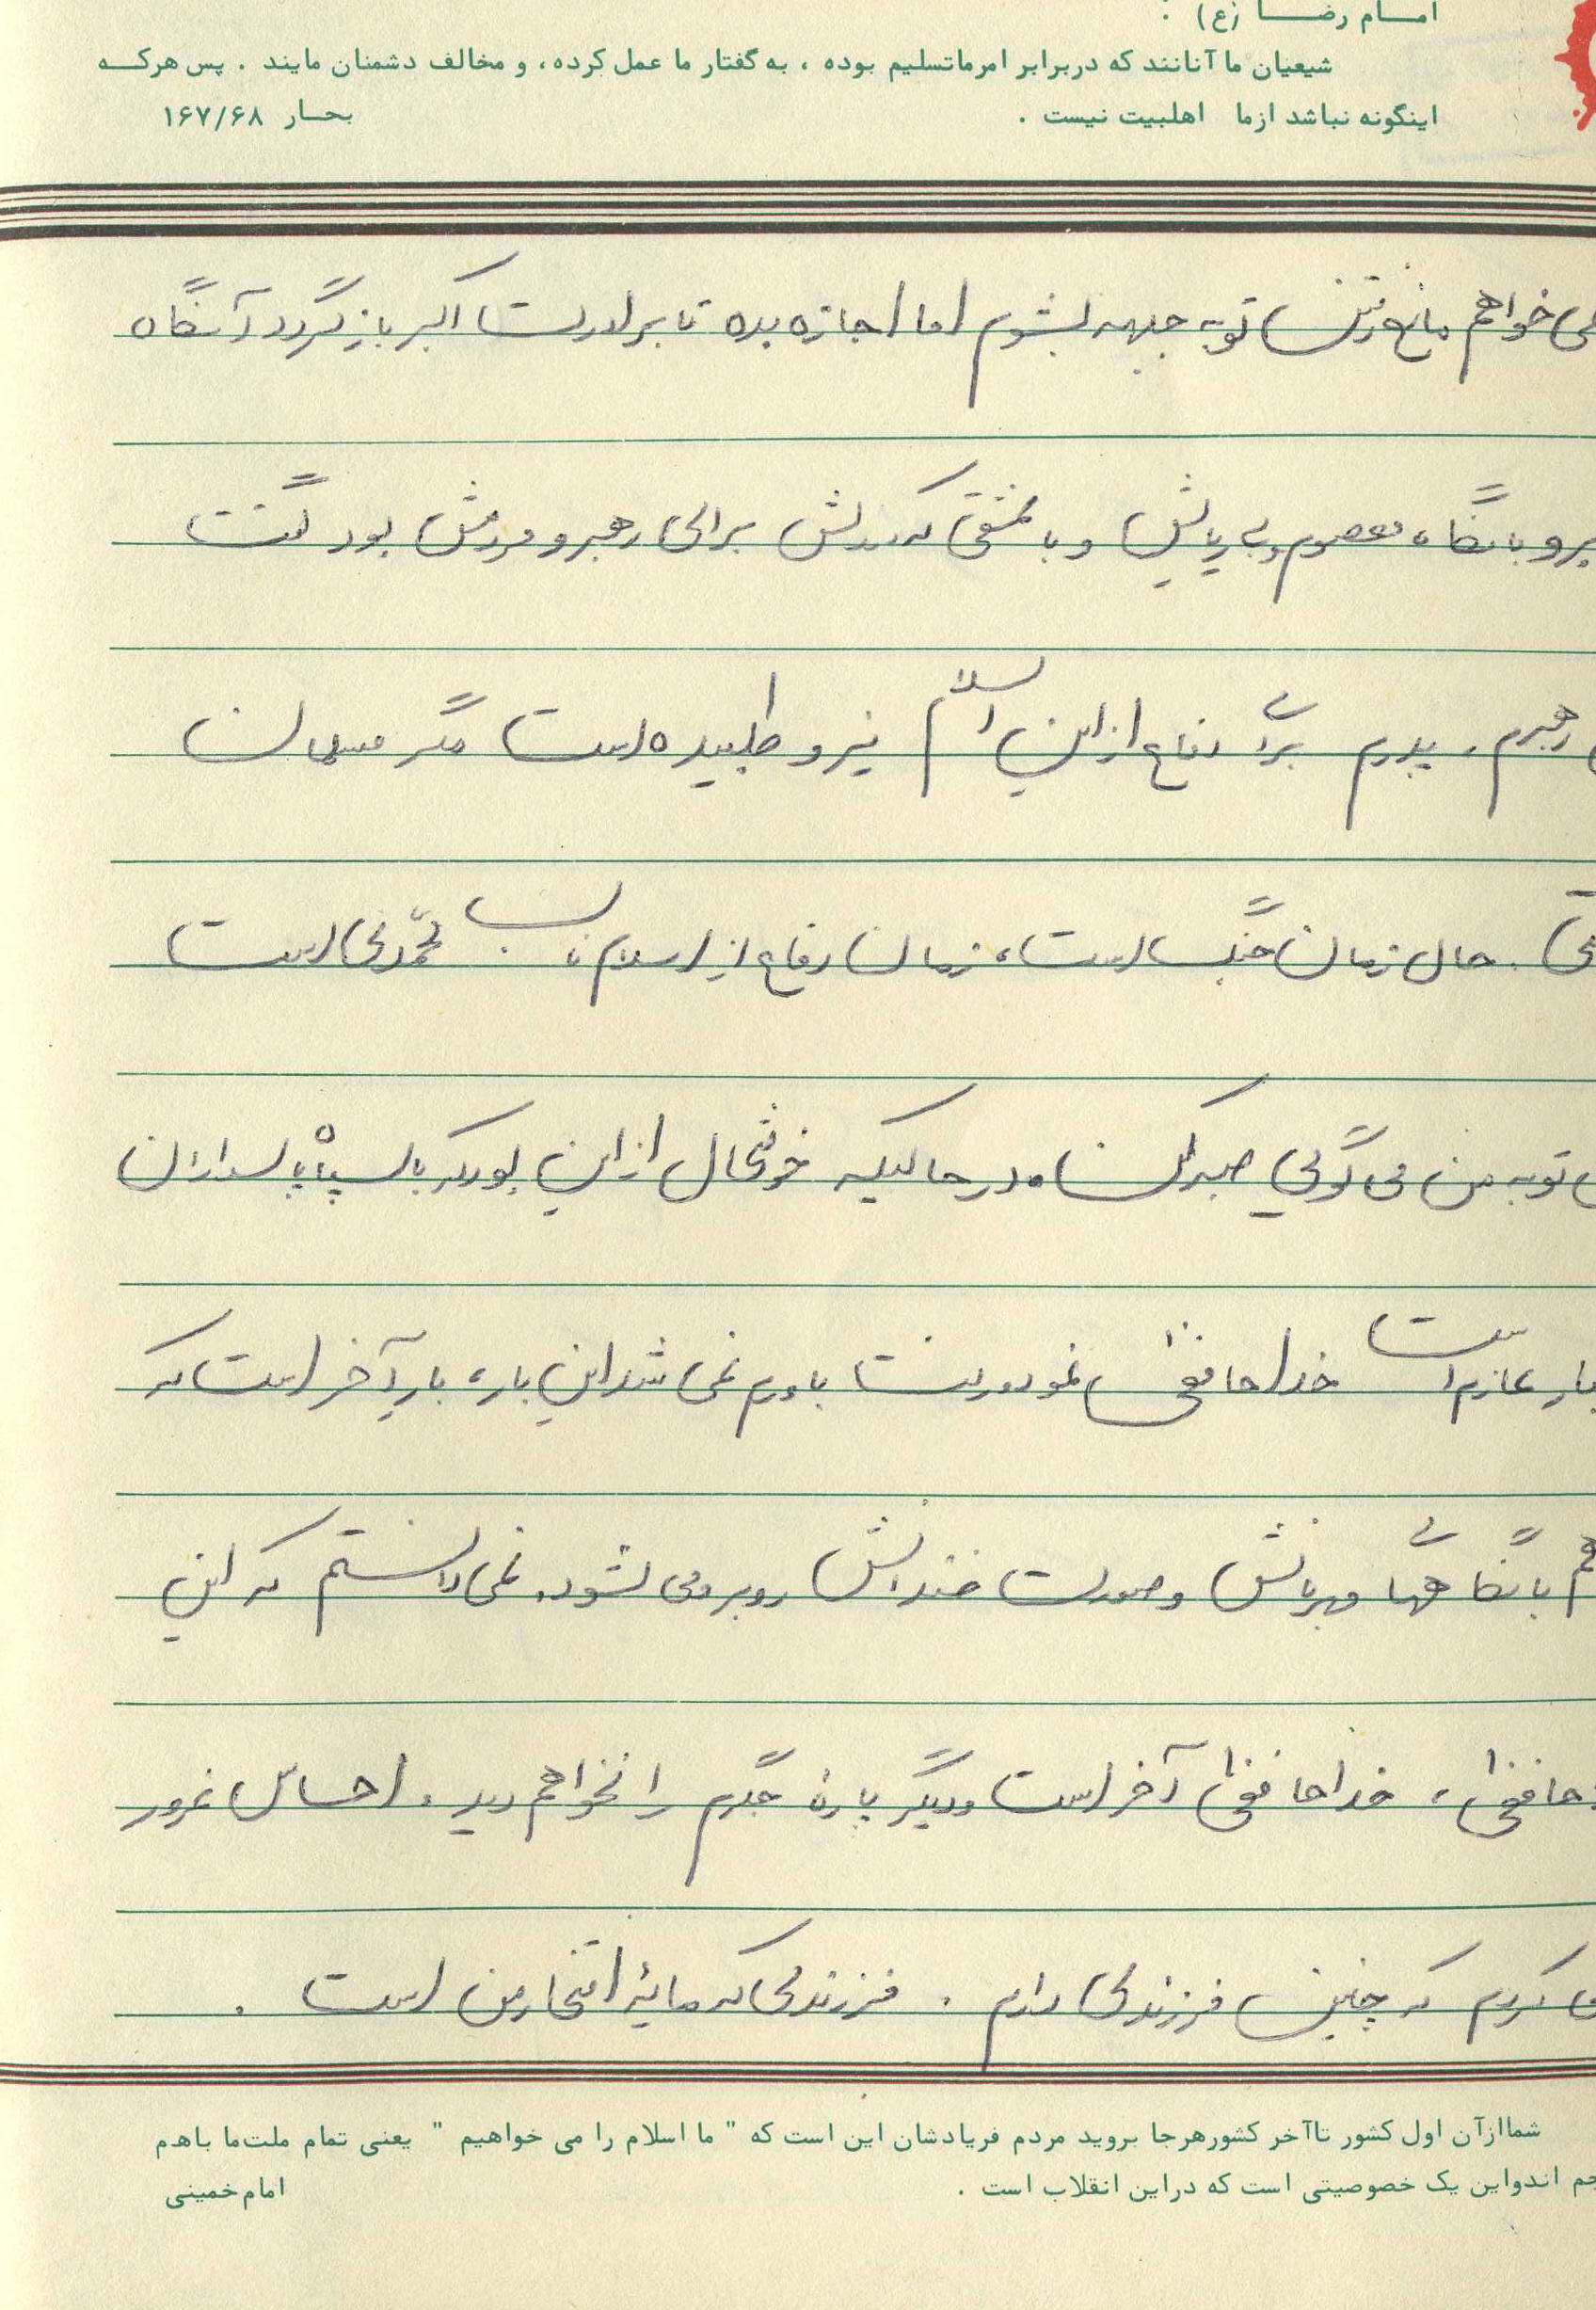 امام رضا (ع) :
شیعیان ما آنانند که دربرابر امرماتسلیم بوده ، به گفتار ما عمل کرده ، و مخالف دشمنان مایند . پس هرکه
اینگونه نباشد ازما اهلبیت نیست . بحار ۱۶۷/۶۸
می خواهم مانع رفتن تو به جبهه بشوم اما اجازه بده تا برادرت اکبر باز گردد آنگاه
برو با نگاه معصوم و بی ریایش و با عشقی که بدلش برای رهبر و مردمش بود گفت
رهبرم ، پدرم برای دفاع از این اسلام نیرو طلبیده است مگر مسلمان
حال زمان جنگ است ، زمان دفاع از اسلام ناب محمدی است
تو به من می گویی صبر کن ، در حالیکه خوشحال از این بود که با سپاه پاسداران
عازم است خداحافظی نمود و رفت باورم نمی شد این بار ، بار آخر است که
با نگاههای مهربانش و صورت خندانش روبرو می شود . نمی دانستم که این
حافظی ، خداحافظی آخر است و دیگر پارهٔ جگرم را نخواهم دید . احساس غرور
می کردم که چنین فرزندی دارم . فرزندی که مایهٔ افتخار من است .
شماازآن اول کشور تاآخر کشورهرجا بروید مردم فریادشان این است که " ما اسلام را می خواهیم " یعنی تمام ملت‌ما باهم
اندواین یک خصوصیتی است که دراین انقلاب است . امام خمینی